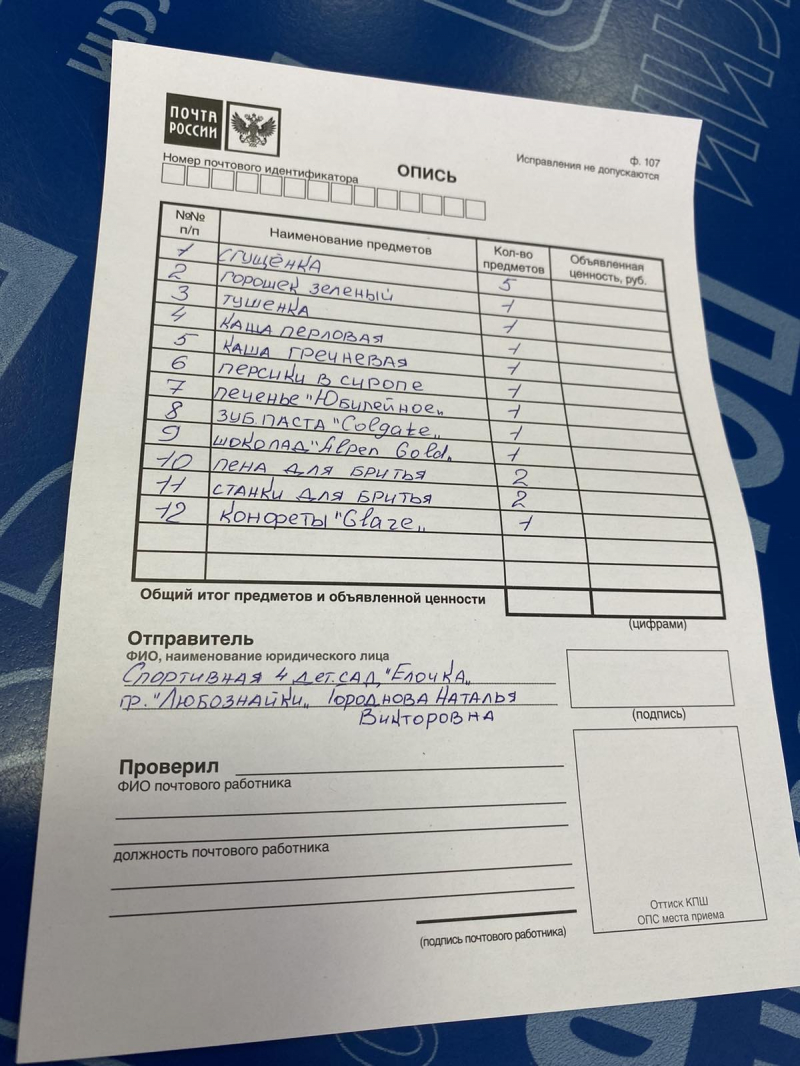 ПОЧТА
РОССИИ
ф. 107
Исправления не допускаются
ОПИСЬ
Номер почтового идентификатора
№№ п/п Наименование предметов Кол-во предметов Объявленная ценность, руб.
1 СГУЩЁНКА 5
2 ГОРОШЕК ЗЕЛЕНЫЙ 1
3 ТУШЕНКА 1
4 КАША ПЕРЛОВАЯ 1
5 КАША ГРЕЧНЕВАЯ 1
6 ПЕРСИКИ В СИРОПЕ 1
7 ПЕЧЕНЬЕ "Юбилейное" 1
8 ЗУБ. ПАСТА "Colgate" 1
9 ШОКОЛАД "Alpen Gold" 1
10 ПЕНА ДЛЯ БРИТЬЯ 2
11 СТАНКИ ДЛЯ БРИТЬЯ 2
12 КОНФЕТЫ "Glaze" 1
Общий итог предметов и объявленной ценности
(цифрами)
Отправитель
ФИО, наименование юридического лица
Спортивная 4 дет.сад "Елочка"
гр. "Любознайки" Городнова Наталья
Викторовна
(подпись)
Проверил
ФИО почтового работника
должность почтового работника
(подпись почтового работника)
Оттиск КПШ
ОПС места приема